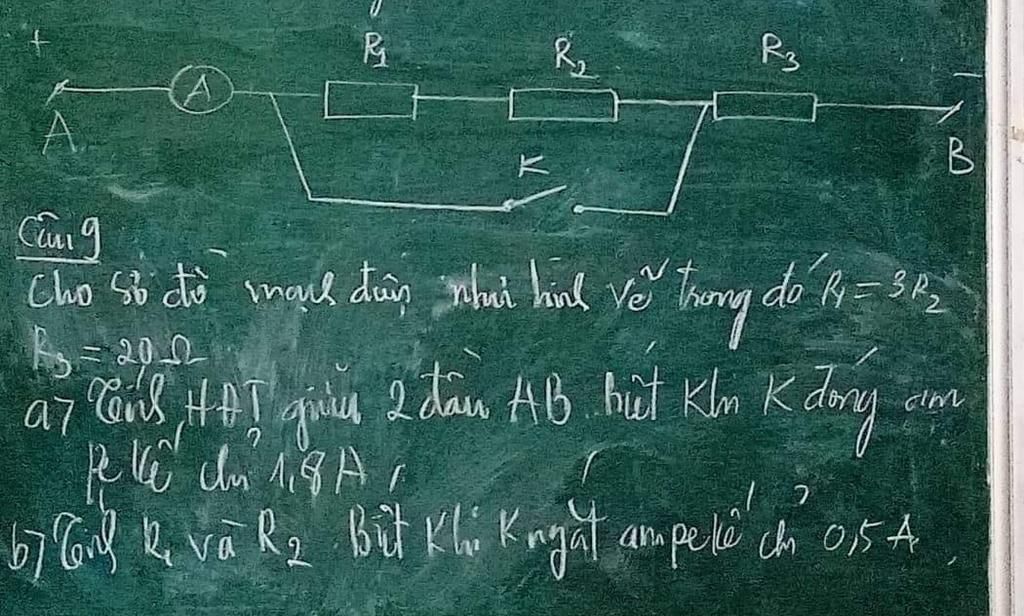 + R₁ R₂ R₃ -
A A K B
Câu 9
Cho sơ đồ mạch điện như hình vẽ trong đó R₁ = 3R₂
R₃ = 20 Ω
a) Tính HĐT giữa 2 đầu AB biết khi K đóng am
pe kế chỉ 1,8A,
b) Tính R₁ và R₂. Biết khi K ngắt ampe kế chỉ 0,5A.